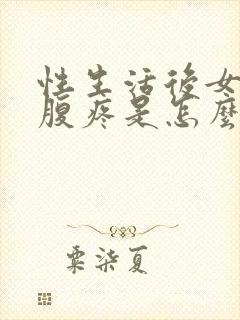 性生活後女
腹疼是怎麼
粟柒夏